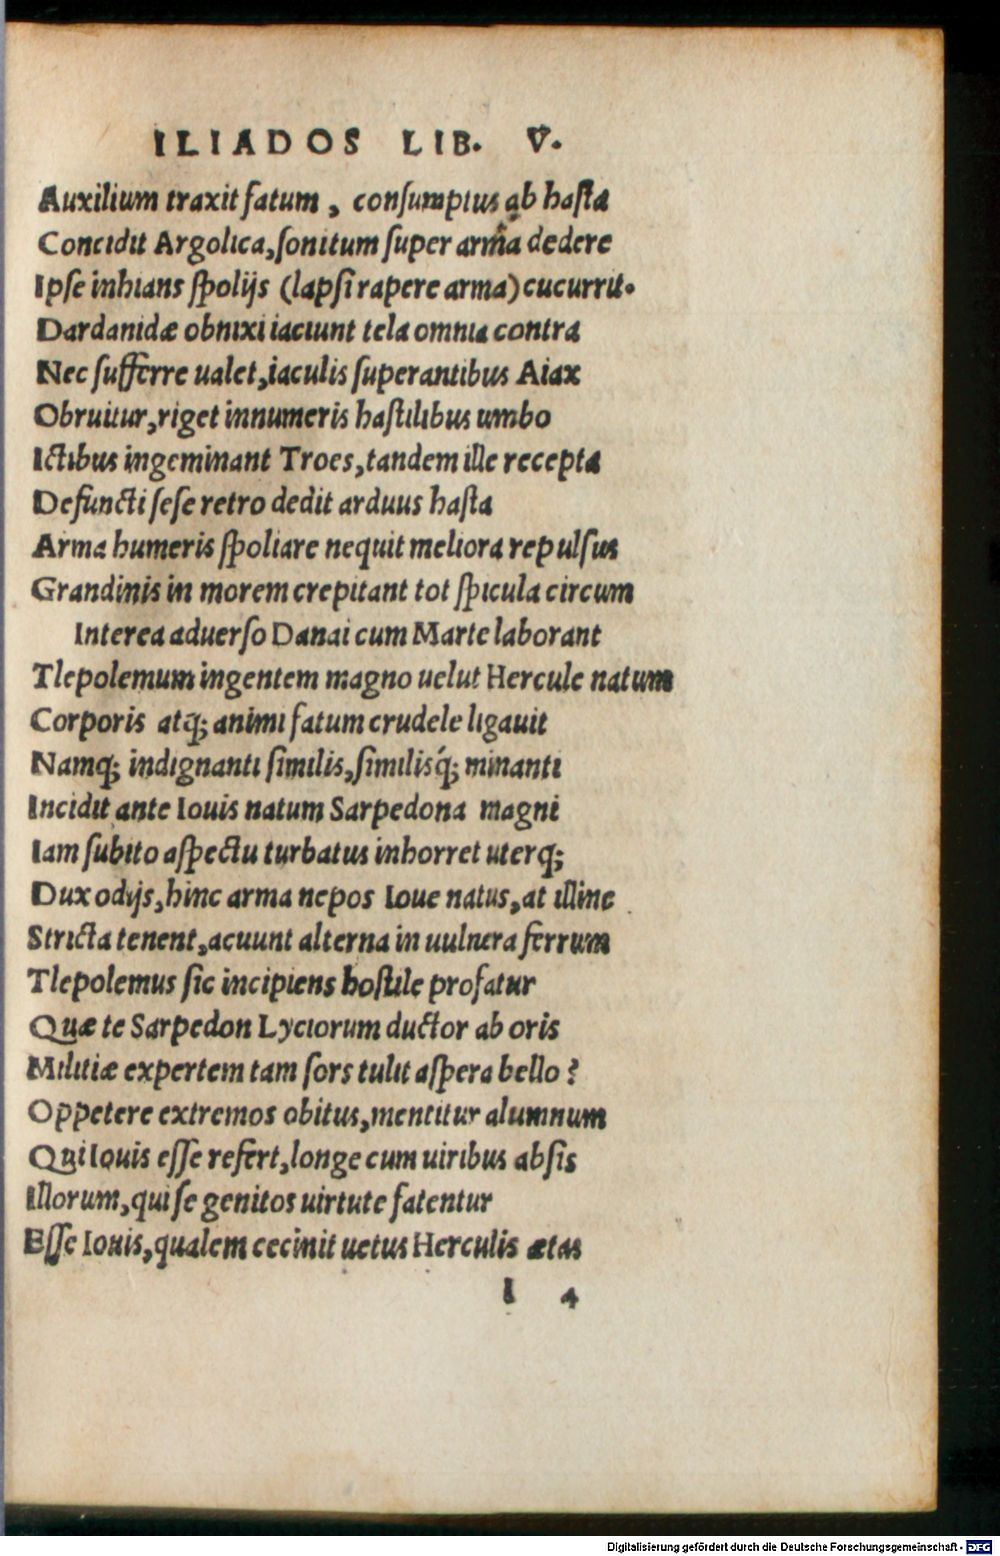 ILIADOS LIB. V.
Auxilium traxit fatum, consumptus ab hasta
Concidit Argolica, sonitum super arma dedere
Ipse inhians spolijs (lapsi rapere arma) cucurrit.
Dardanidæ obnixi iaciunt tela omnia contra
Nec sufferre ualet, iaculis superantibus Aiax
Obruitur, riget innumeris hastilibus umbo
Ictibus ingeminant Troes, tandem ille recepta
Defuncti sese retro dedit arduus hasta
Arma humeris spoliare nequit meliora repulsus
Grandinis in morem crepitant tot spicula circum
Interea aduerso Danai cum Marte laborant
Tlepolemum ingentem magno uelut Hercule natum
Corporis atq; animi fatum crudele ligauit
Namq; indignanti similis, similisq́; minanti
Incidit ante Iouis natum Sarpedona magni
Iam subito aspectu turbatus inhorret uterq;
Dux odijs, hinc arma nepos Ioue natus, at illinc
Stricta tenent, acuunt alterna in uulnera ferrum
Tlepolemus sic incipiens hostile profatur
Quæ te Sarpedon Lyciorum ductor ab oris
Militiæ expertem tam sors tulit aspera bello?
Oppetere extremos obitus, mentitur alumnum
Qui Iouis esse refert, longe cum uiribus absis
Illorum, qui se genitos uirtute fatentur
Esse Iouis, qualem cecinit uetus Herculis ætas
I 4
Digitalisierung gefördert durch die Deutsche Forschungsgemeinschaft - DFG